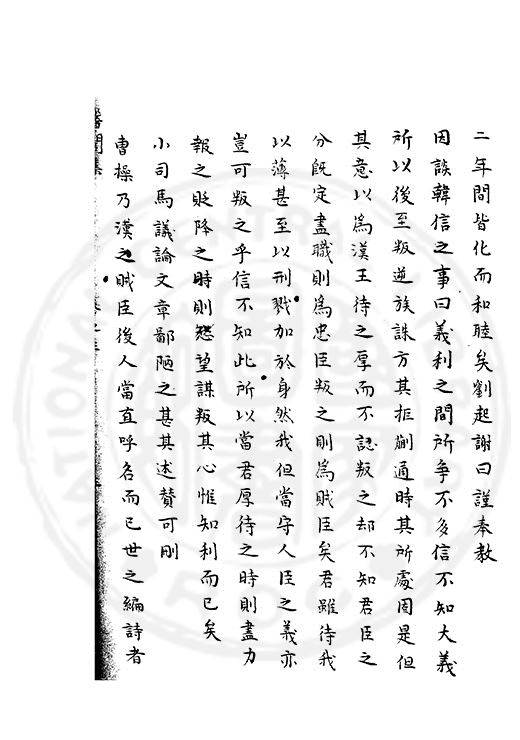 二年間皆化而和睦矣劉起謝曰謹奉教
因談韓信之事曰義利之間所爭不多信不知大義
所以後至叛逆族誅方其拒蒯通時其所處固是但
其意以爲漢王待之厚而不認叛之却不知君臣之
分既定盡職則爲忠臣叛之則爲賊臣矣君雖待我
以薄甚至以刑戮加於身然我但當守人臣之義亦
豈可叛之乎信不知此所以當君厚待之時則盡力
報之貶降之時則怨望謀叛其心惟知利而已矣
小司馬議論文章鄙陋之甚其述贊可刪
曹操乃漢之賊臣後人當直呼名而已世之編詩者